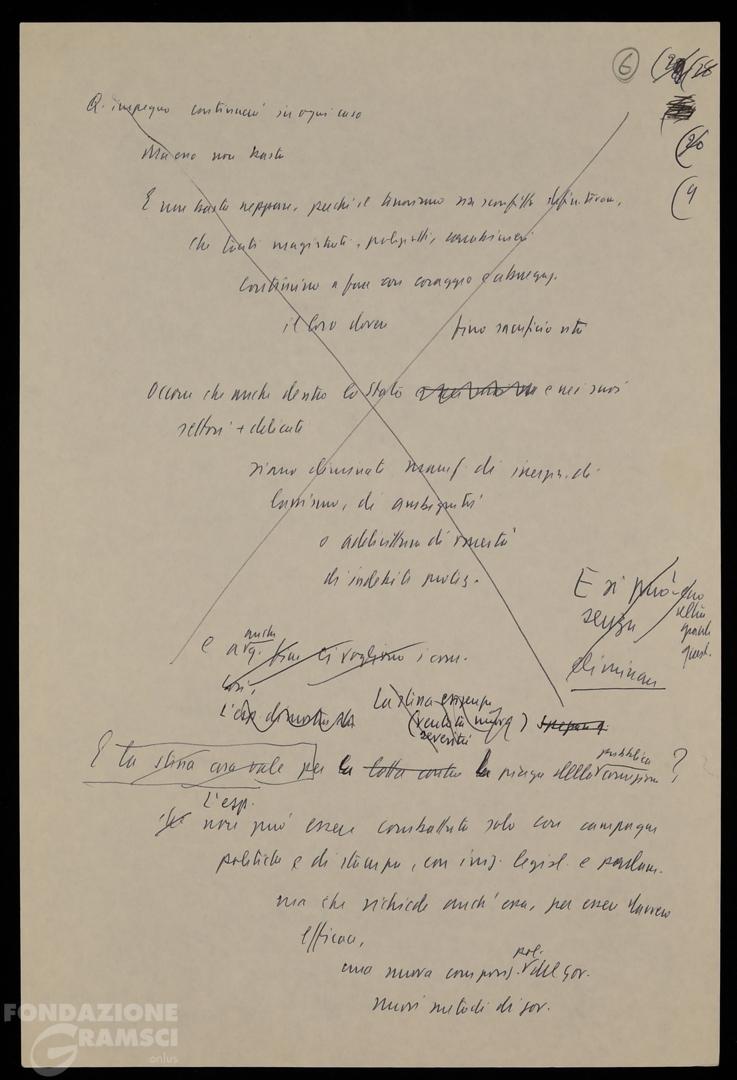 6 (28
(30
(4
Q. impegno continuerà in ogni caso
Ma esso non basta
E non basta neppure, perché il terrorismo sia sconfitto definitivam.,
che tanti magistrati, poliziotti, carabinieri
continuino a fare con coraggio e abnegaz.
il loro dovere fino sacrificio vita
Occorre che anche dentro lo Stato e nei suoi
settori + delicati
siano eliminate manif. di inerzia, di
lassismo, di ambiguità
o addirittura di omertà
di indebite protez.
E si può
senza
eliminare
e anche
così,
L'esp. dimostra
La stessa esigenza
(
severità
)
E la stessa cosa vale per la lotta contro la piaga della pubblica corruzione ?
L'esp.
non può essere combattuta solo con campagne
politiche e di stampa, con iniz. legisl. e parlam.
ma che richiede anch'essa, per essere davvero
efficace,
una nuova composiz. pol. del gov.
nuovi metodi di gov.
FONDAZIONE
GRAMSCI
onlus